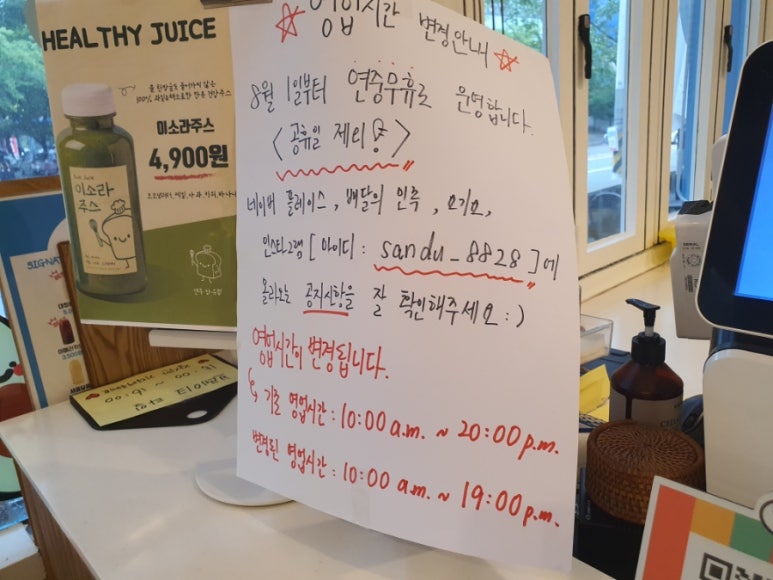 HEALTHY JUICE
이소라주스
4,900원
이소라
주스
영업시간 변경안내
8월 1일부터 연중무휴로 운영합니다.
<공휴일 제외>
네이버 플레이스, 배달의 민족, 요기요,
인스타그램 [아이디 : sandu_8828]에
올라오는 공지사항을 잘 확인해주세요 :)
영업시간이 변경됩니다.
기존 영업시간 : 10:00 a.m. ~ 20:00 p.m.
변경된 영업시간 : 10:00 a.m. ~ 19:00 p.m.